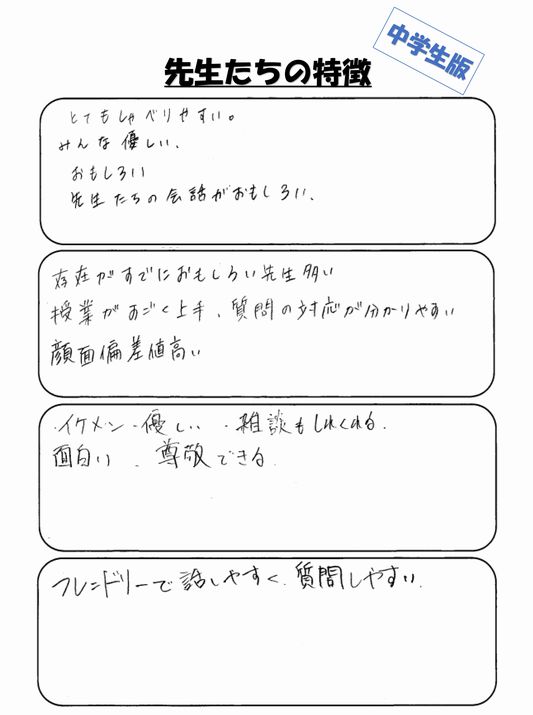 中学生版
先生たちの特徴
とてもしゃべりやすい。
みんな優しい、
おもしろい
先生たちの会話がおもしろい、
存在がすでにおもしろい先生多い
授業がすごく上手、質問の対応が分かりやすい
顔面偏差値高い
・イケメン・優しい ・雑談もしてくれる、
面白い 、尊敬できる
フレンドリーで話しやすく、質問しやすい、